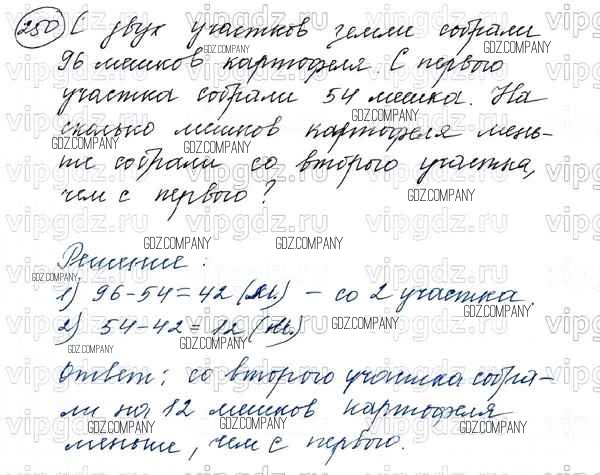 250 С двух участков земли собрали
96 мешков картофеля. С первого
участка собрали 54 мешка. На
сколько мешков картофеля мень-
ше собрали со второго участка,
чем с первого?
Решение:
1) 96-54=42 (м.) - со 2 участка.
2) 54-42=12 (м.)
Ответ: со второго участка собра-
ли на 12 мешков картофеля
меньше, чем с первого.